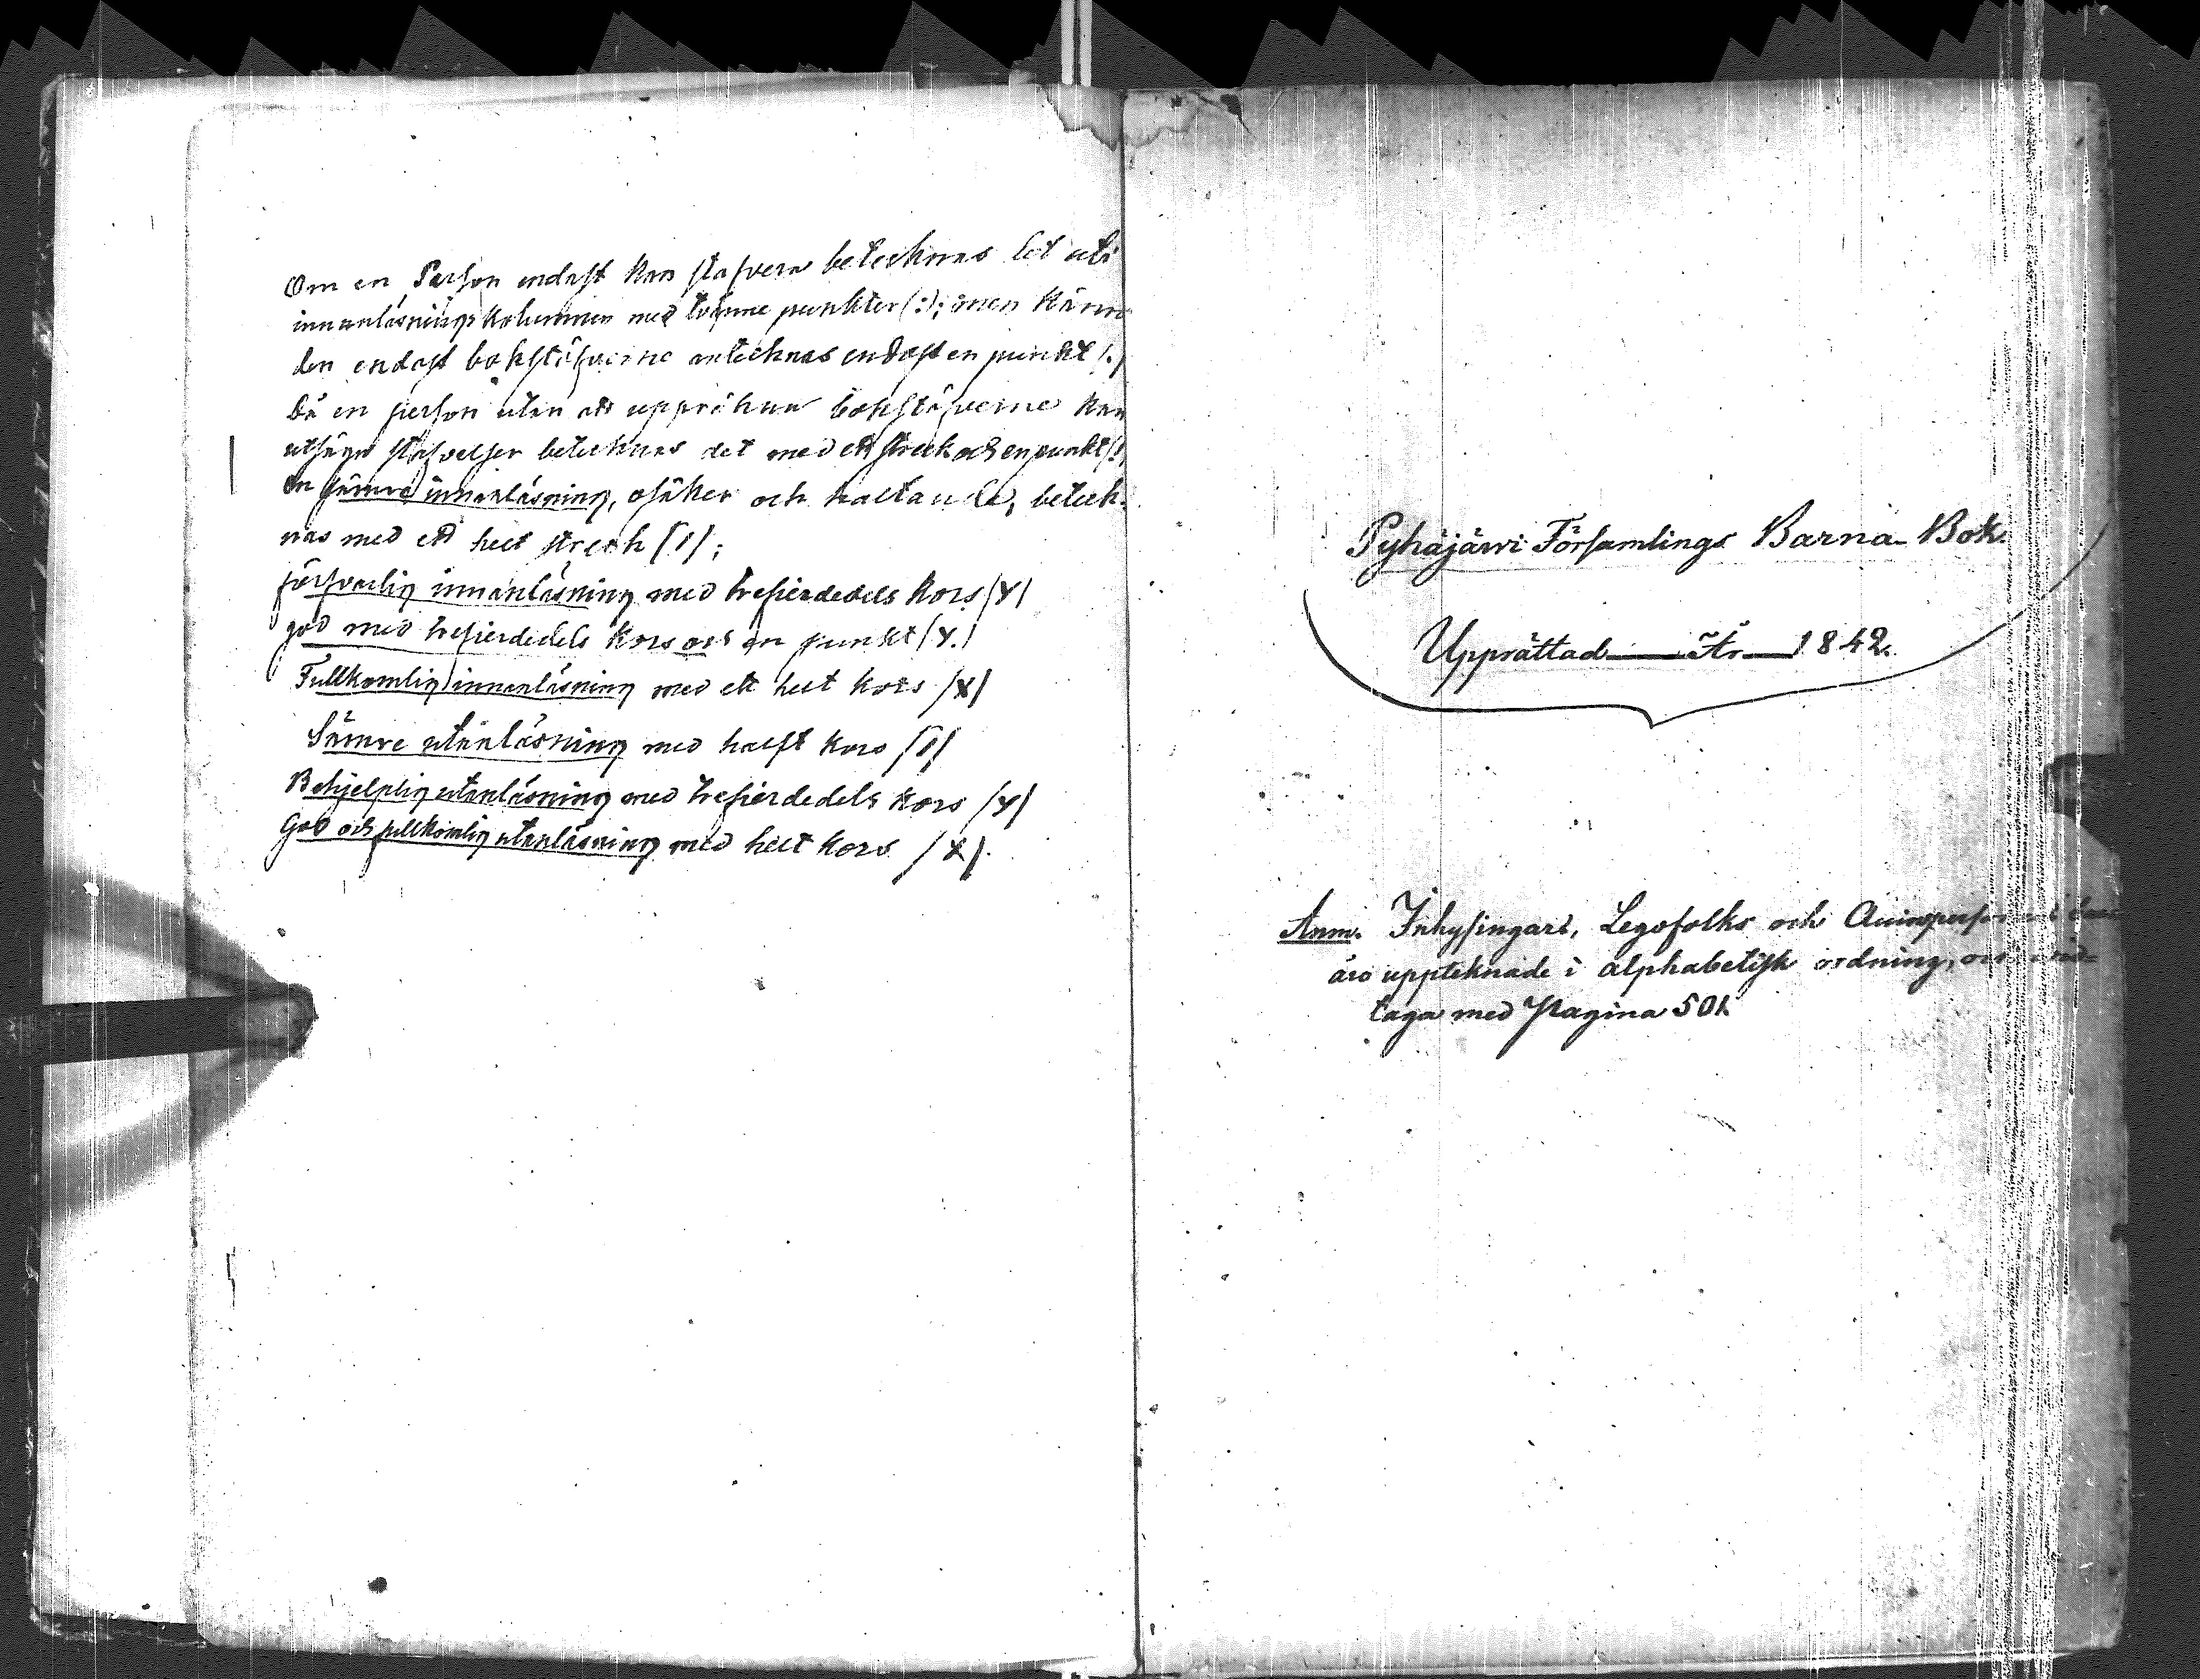 Om en Person endast kan stafvera betecknas det uti
innanläsnings kolumnen med tvänne punkter (:); men känn
den endast bokstäfverne antecknas endast en punkt (.)
Då en person utan att uppräkna bokstäfverne kan
utsäga stafvelser betecknas det med ett streck och en punkt (!)
en sämre innanläsning, osäker och haltande, beteck-
nas med ett helt streck (/);
försvarlig innanläsning med trefierdedels kors (Y)
god med trefierdedels kors och en punkt (Y.)
Fullkomlig innanläsning med ett helt kors (X)
Sämre utanläsning med halft kors (/)
Behjelplig utanläsning med trefierdedels kors (Y)
God och fullkomlig utanläsning med helt kors (X).
Pyhäjärvi Församlings Barna-Bok.
Upprättad År 1842.
Anm. Inhysingars, Legofolks och
äro uppteknade i alphabetisk ordning,
taga med Pagina 501.